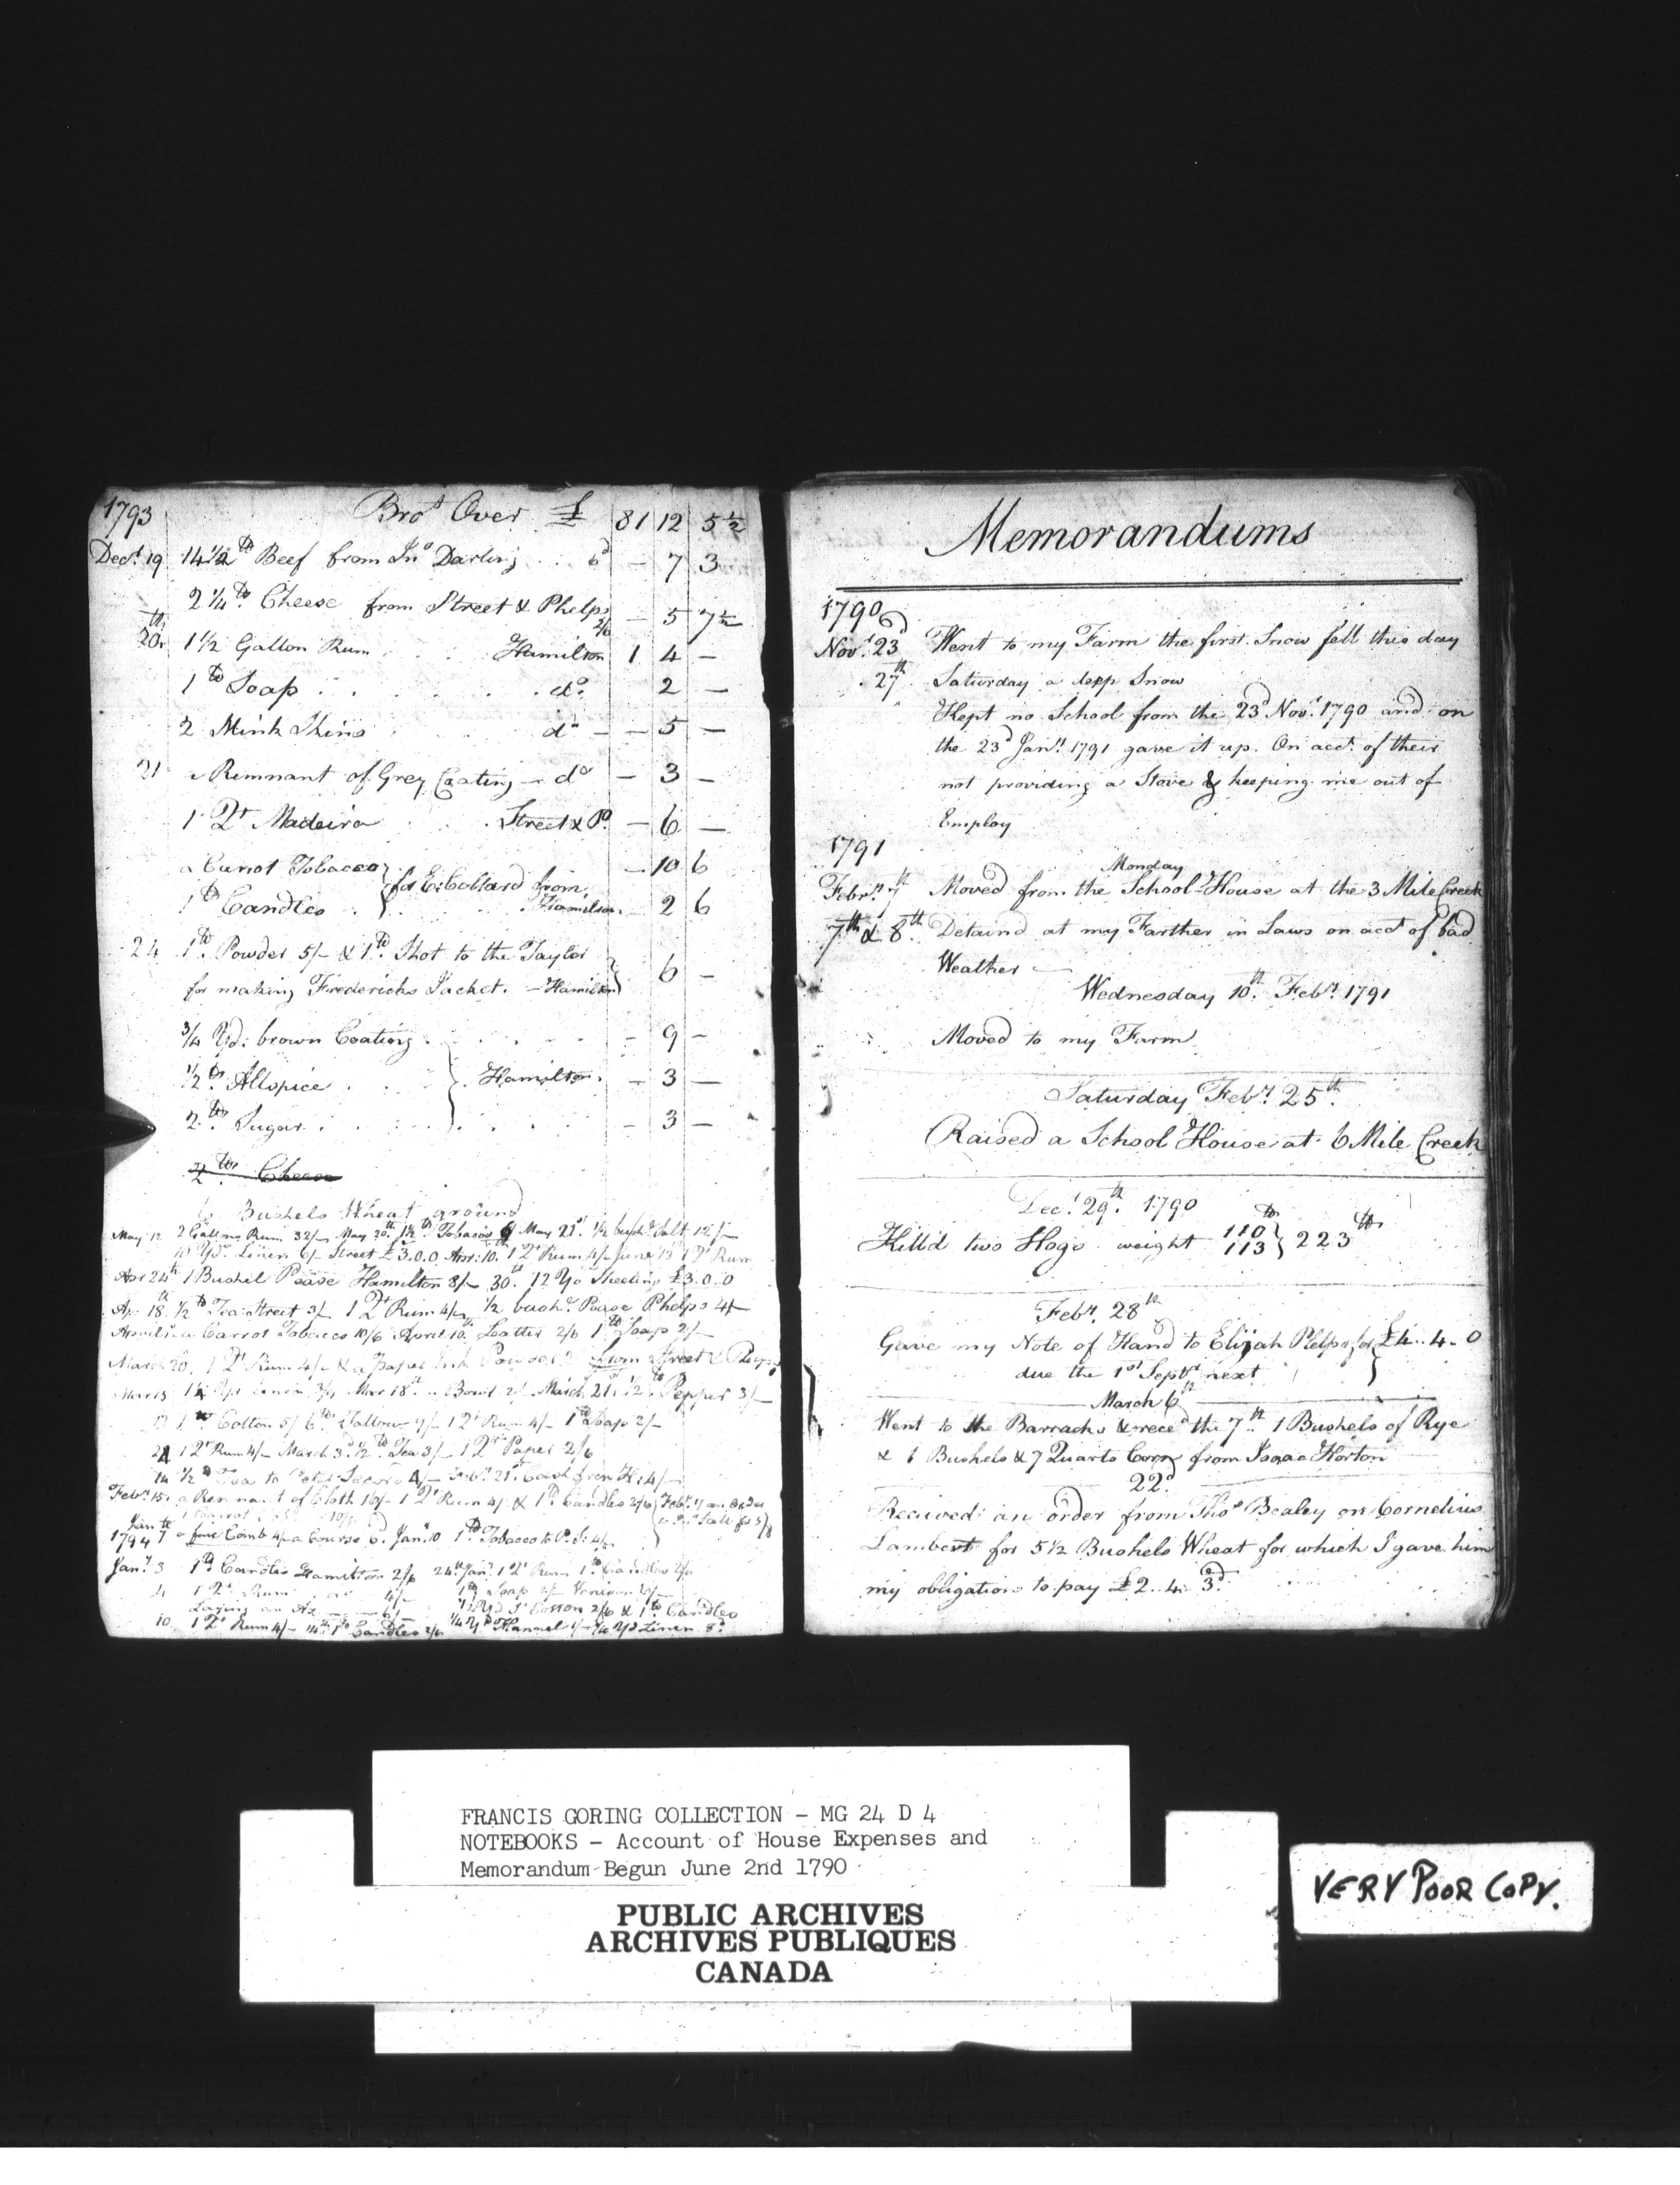 1793 Bro.t Over £ 81 12 5½
Dec.r 19 14½ lb Beef from Jn.o Darling .. 6d - 7 3
2¼ lb. Cheese from Street & Phelps 2/6 - 5 7½
20th 1½ Gallon Rum Hamilton 1 4 -
1 lb Soap do. 2 -
2 Mink Skins do - - 5 -
21 a Remnant of Grey Coating - do - 3 -
1 Qt Madeira Street & P. - 6 -
a Carrot Tobacco } for E: Collard from - 10 6
1 lb Candles } Hamilton - 2 6
24 1 lb. Powder 5/- & 1 lb. Shot to the Taylor
for making Fredericks Jacket. - Hamilton } 6 -
¾ Yd: brown Coating - 9 -
½ lb Allspice } Hamilton. - 3 -
2 lbs Sugar - 3 -
2 lbs Cheese
6 Bushels Wheat ground
May 12 2 Gallons Rum 32/- May 20th 1½ lb Tobacco May 21st ½ bush.l Salt 12/-
10 Yds Linen 6/- Street £3.0.0 Apr: 10th 1 Qt Rum 4/- June 13 1 Qt Rum
Apr 24th 1 Bushel Pease Hamilton 8/- 30th. 12 Yds Sheeting £3.0.0
Ap. 18th ½ lb Tea Street 3/- 1 Qt Rum 4/- ½ bush.l Pease Phelps 4/-
a Carrot Tobacco 10/6 April 10th 2/6 1 lb Soap 2/-
March 20. 1 Qt Rum 4/- & a paper Ink Powder from Street & Phelps
Mar 18th Bowl 2/- March 21st ½ lb Pepper 3/-
1 lb Cotton 5/ 6 lb Tallow 9/- 1 Qt Rum 4/- 1 lb Soap 2/-
24 1 Qt Rum 4/- March 3d ½ lb Tea 3/- 1 Qr Paper 2/6
14 ½ lb Tea to 4/- Feb.y 21st Cash from H: 4/-
Feb.y 15. a Remnant of Cloth 16/- 1 Qt Rum 4/- & 1 lb Candles 2/6 Feb.y 17 an Order
1794 7 a fine Comb 4/- a Course 6. Jan.y 10 1 lb Tobacco to P.S: 4/-
Jan.y 3 1 lb Candles Hamilton 2/6 24th Jan.y 1 Qt Rum 1 lb Candles 2/6
4 1 Qt Rum do 4/- 1 lb Soap 2/- Venison
Laying an Ax - - 6/- Cotton 2/6 & 1 lb Candles
10 1 Qt Rum 4/- 14th 1 lb Candles 2/6 ¼ Yd Flannel Yd Linen
Memorandums
1790
Nov.r 23d Went to my Farm the first Snow fell this day
27th Saturday a depp Snow
Kept no School from the 23d Nov.r 1790 and on
the 23d Jan.y 1791 gave it up. On acct. of their
not providing a Stove & keeping me out of
Employ
1791
Monday
Febr.y 7th Moved from the School-House at the 3 Mile Creek
7th & 8th Detaind at my Farther in Laws on acct of bad
Weather -
Wednesday 10th. Feb.y 1791
Moved to my Farm
Saturday Feb.y 25th.
Raised a School House at 6 Mile Creek
Dec.r 29th. 1790
Kill'd two Hogs weight 110 lb 113 } 223 lbs
Feb.y 28th
Gave my Note of Hand to Elijah Phelps for £4..4-0
due the 1st Sept.r next }
March 6th
Went to the Barracks & rec.d the 7th.. 1 Bushels of Rye
& 1 Bushels & 7 Quarts Corn from Isaac Horton
22d.
Received an order from Tho.s Bealey on Cornelius
Lambert for 5½ Bushels Wheat for which I gave him
my obligation to pay £2..4..3d.
FRANCIS GORING COLLECTION - MG 24 D 4
NOTEBOOKS - Account of House Expenses and
Memorandum Begun June 2nd 1790
PUBLIC ARCHIVES
ARCHIVES PUBLIQUES
CANADA
VERY POOR COPY.